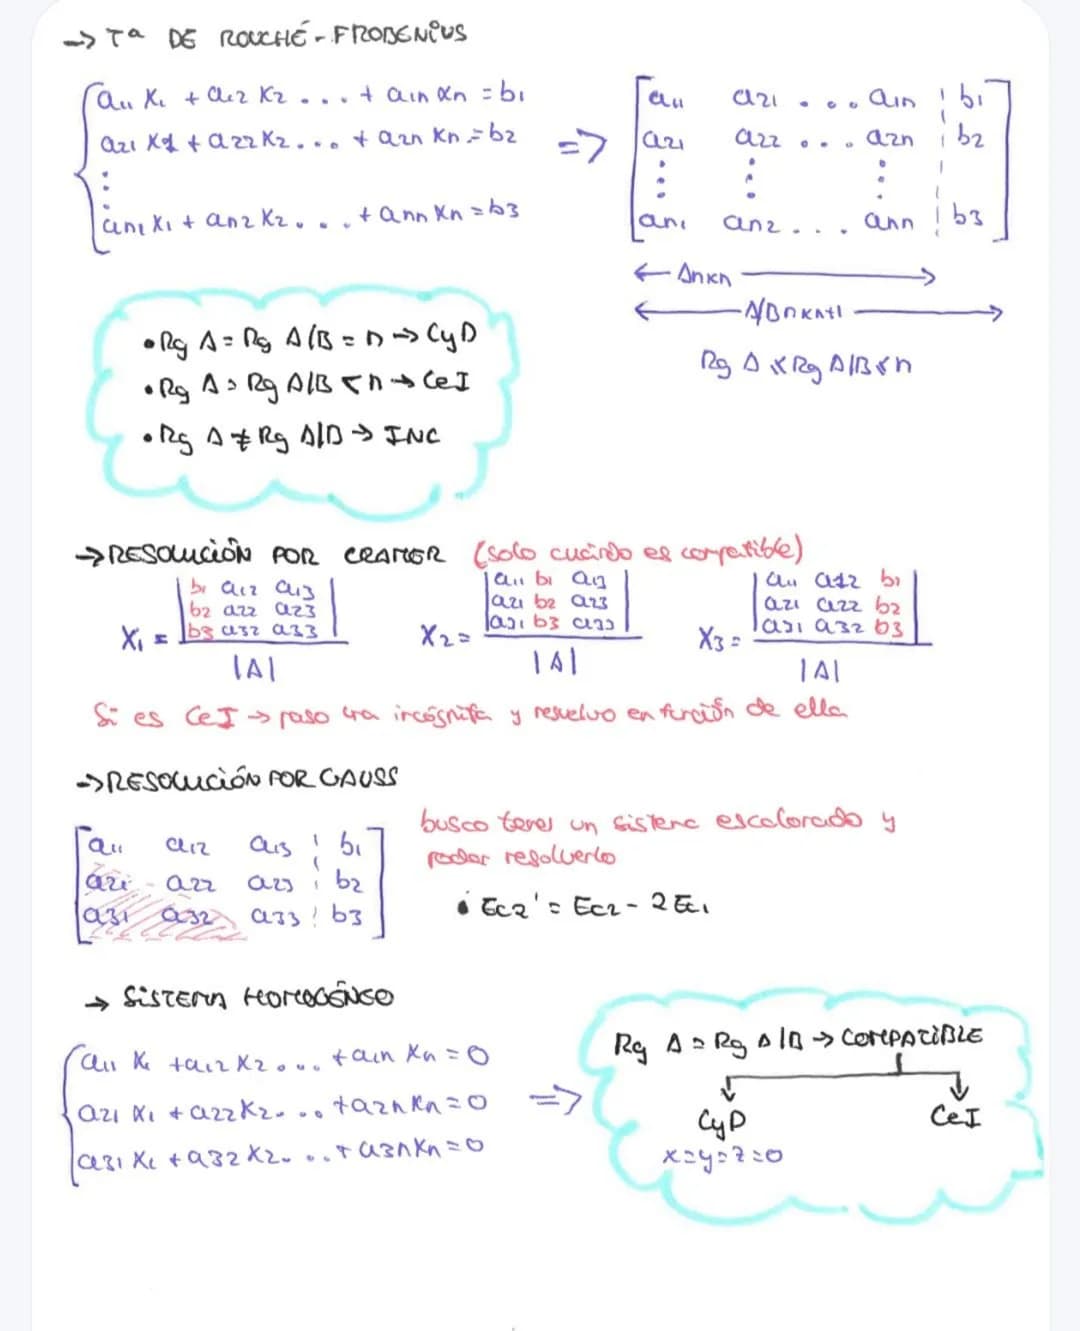 → Tª DE ROUCHÉ-FROBENIUS
a11 x1 + a12 x2 ... + a1n xn = b1
a21 x1 + a22 x2 ... + a2n xn = b2
⋮
an1 x1 + an2 x2 ... + ann xn = b3
⇒
a11 a21 ... a1n | b1
a21 a22 ... a2n | b2
⋮ ⋮ ⋮
an1 an2 ... ann | b3
← Anxn →
← A/Bnxn+1 →
Rg A ≤ Rg A/B ≤ n
• Rg A = Rg A/B = n → CyD
• Rg A = Rg A/B < n → CeI
• Rg A ≠ Rg A/B → INC
→ RESOLUCIÓN POR CRAMER (solo cuándo es compatible)
x1 = |b1 a12 a13
b2 a22 a23
b3 a32 a33| / |A|
x2 = |a11 b1 a13
a21 b2 a23
a31 b3 a33| / |A|
x3 = |a11 a12 b1
a21 a22 b2
a31 a32 b3| / |A|
Si es CeI → paso 1ra incógnita y resuelvo en función de ella
→ RESOLUCIÓN POR GAUSS
a11 a12 a13 | b1
a21 a22 a23 | b2
a31 a32 a33 | b3
busco tener un sistema escalonado y
poder resolverlo
• Ec2' = Ec2 - 2Ec1
→ SISTEMA HOMOGÉNEO
a11 x1 + a12 x2 ... + a1n xn = 0
a21 x1 + a22 x2 ... + a2n xn = 0
a31 x1 + a32 x2 ... + a3n xn = 0
⇒
Rg A = Rg A/B → COMPATIBLE
CyD CeI
x=y=z=0